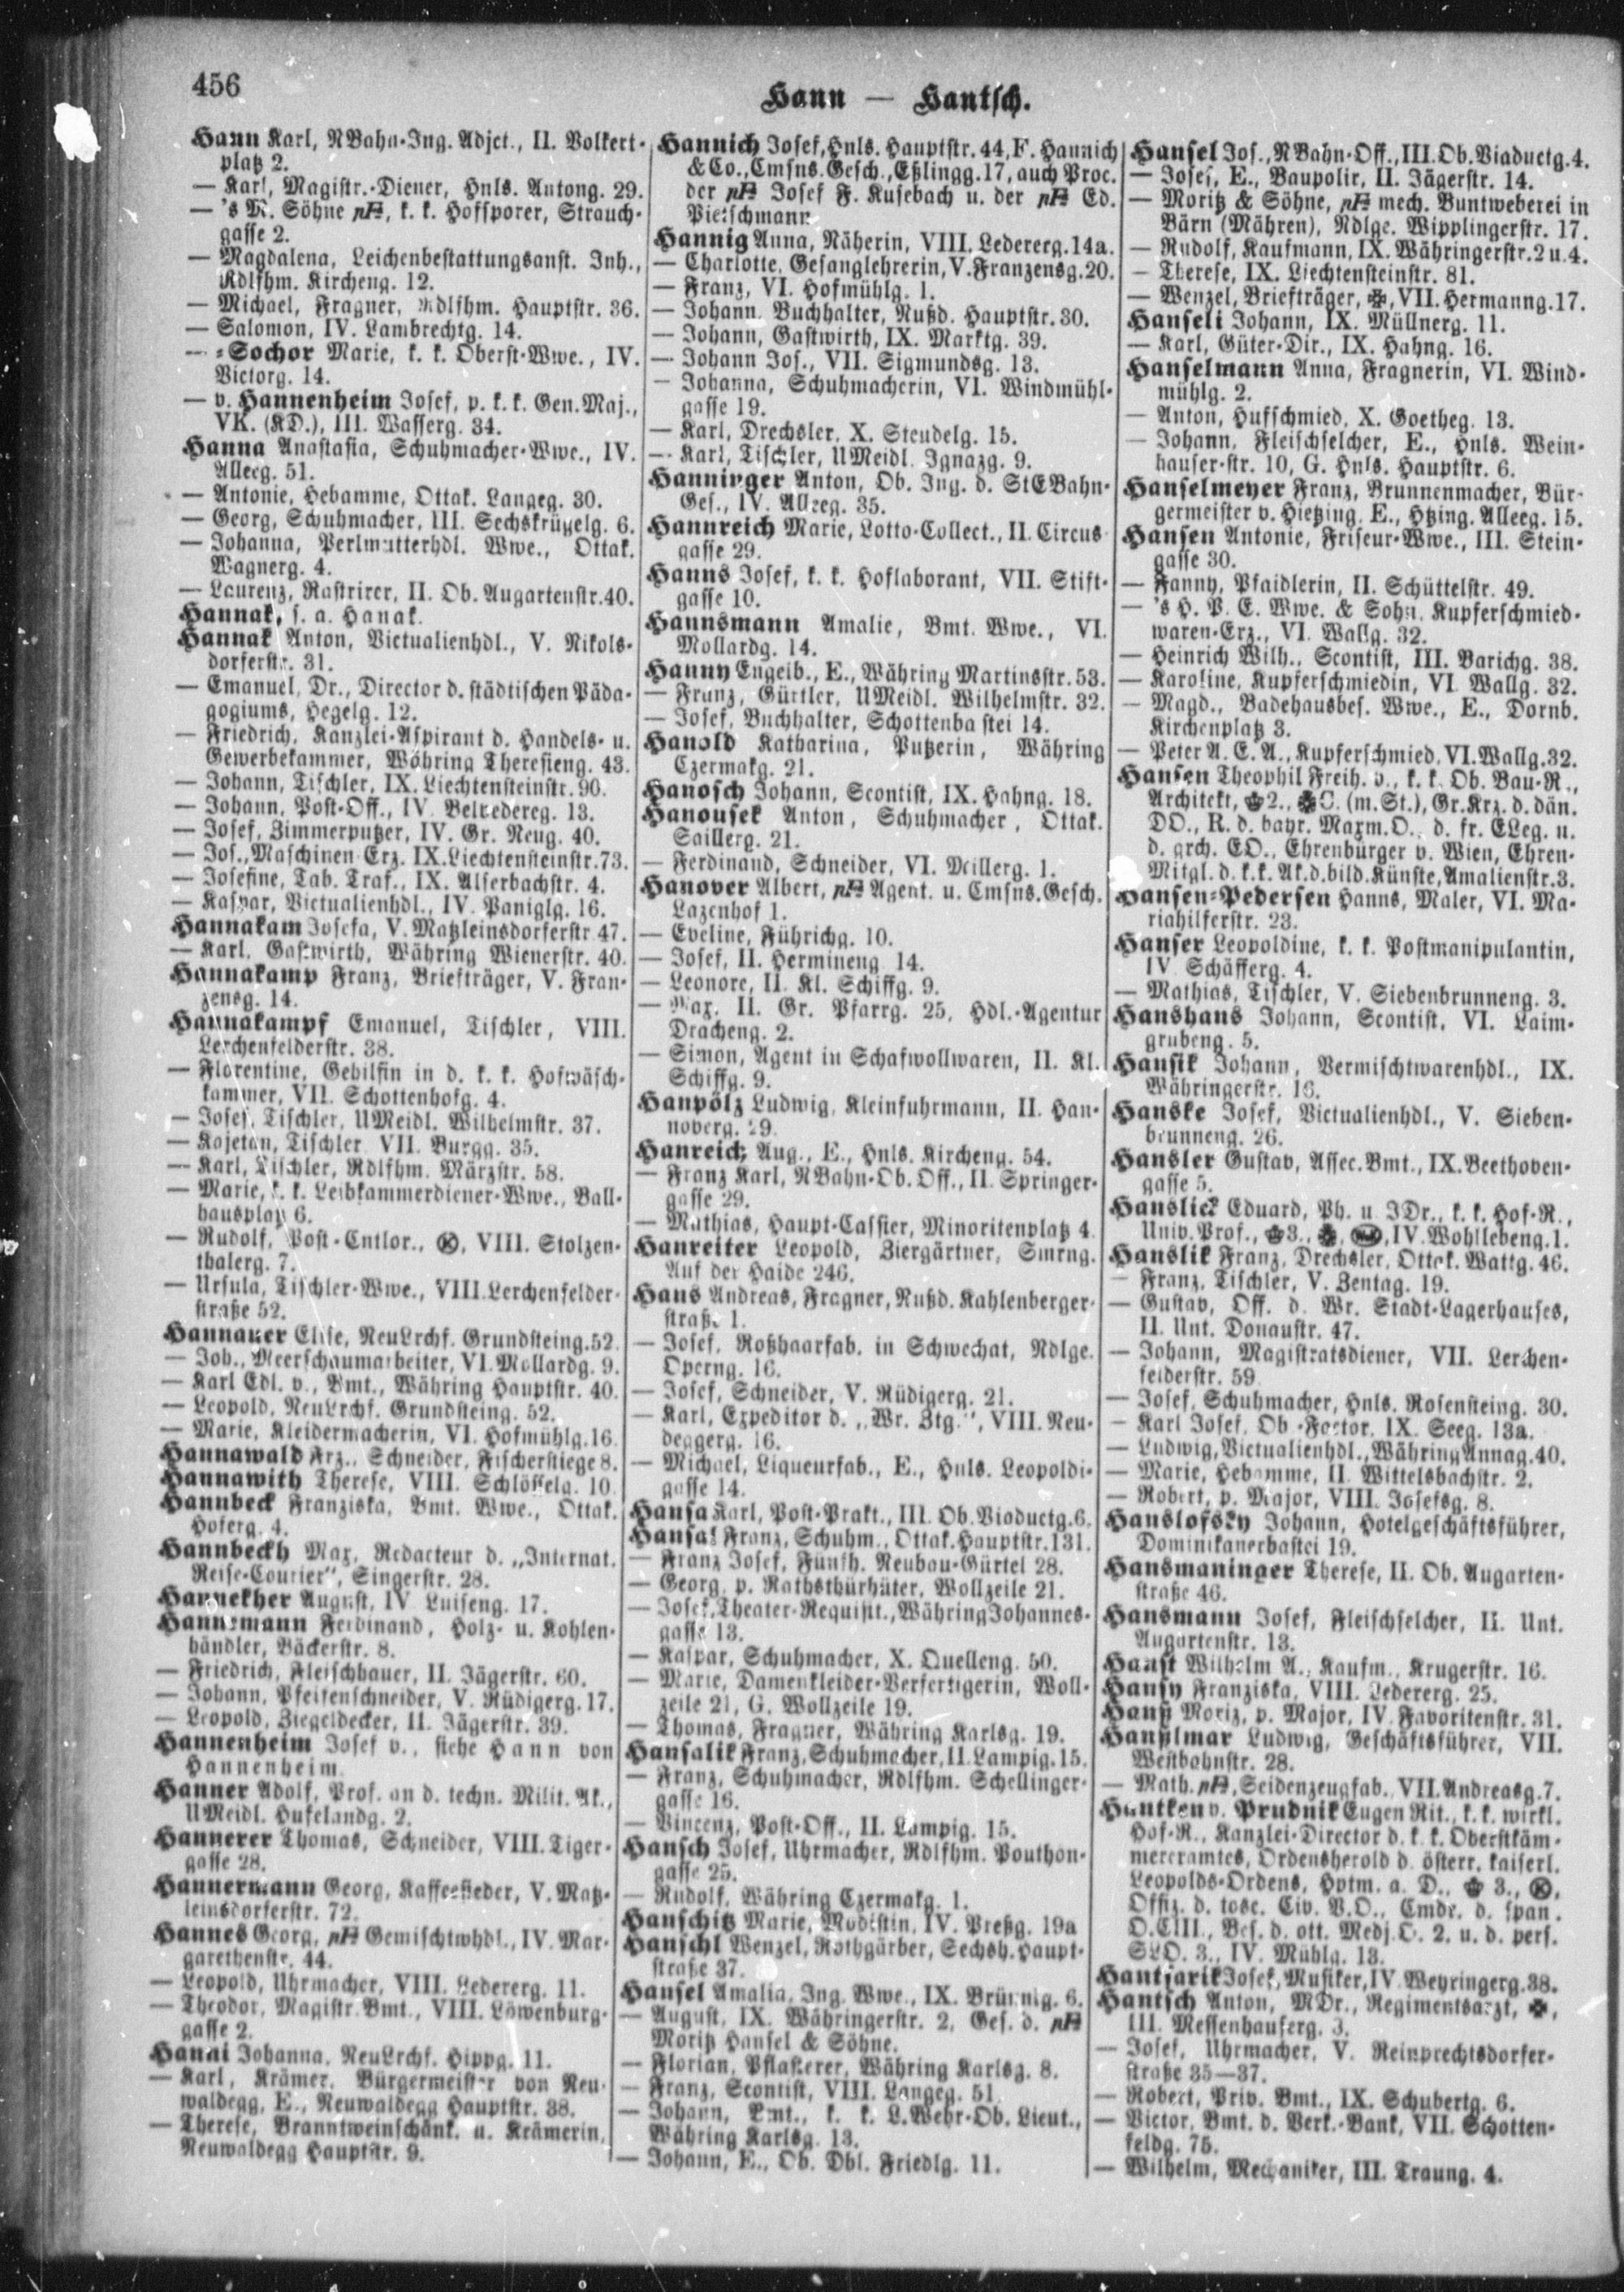 456
Hann — Hantsch.
Hann Karl, NBahn-Ing. Adjct., II. Volkert-
platz 2.
— Karl, Magistr.-Diener, Hnls. Antong. 29.
— 's M. Söhne, k. k. Hofsporer, Strauch-
gasse 2.
— Magdalena, Leichenbestattungsanst. Inh.,
Rdlfhm. Kircheng. 12.
— Michael, Fragner, Rdlfhm. Hauptstr. 36.
— Salomon, IV. Lambrechtg. 14.
— -Sochor Marie, k. k. Oberst-Wwe., IV.
Victorg. 14.
— v. Hannenheim Josef, p. k. k. Gen. Maj.,
VK. (KD.), III. Wasserg. 34.
Hanna Anastasia, Schuhmacher-Wwe., IV.
Alleeg. 51.
— Antonie, Hebamme, Ottak. Langeg. 30.
— Georg, Schuhmacher, III. Sechskrügelg. 6.
— Johanna, Perlmutterhdl. Wwe., Ottak.
Wagnerg. 4.
— Laurenz, Rastrirer, II. Ob. Augartenstr. 40.
Hannak, s. a. Hanak.
Hannak Anton, Victualienhdl., V. Nikols-
dorferstr. 31.
— Emanuel, Dr., Director d. städtischen Päda-
gogiums, Hegelg. 12.
— Friedrich, Kanzlei-Aspirant d. Handels- u.
Gewerbekammer, Währing Theresieng. 43.
— Johann, Tischler, IX. Liechtensteinstr. 90.
— Johann, Post-Off., IV. Belvedereg. 13.
— Josef, Zimmerputzer, IV. Gr. Neug. 40.
— Jos., Maschinen Erz. IX. Liechtensteinstr. 73.
— Josefine, Tab. Traf., IX. Alserbachstr. 4.
— Kaspar, Victualienhdl., IV. Paniglg. 16.
Hannakam Josefa, V. Matzleinsdorferstr 47.
— Karl, Gastwirth, Währing Wienerstr. 40.
Hannakamp Franz, Briefträger, V. Fran-
zensg. 14.
Hannakampf Emanuel, Tischler, VIII.
Lerchenfelderstr. 38.
— Florentine, Gehilfin in d. k. k. Hofwäsch-
kammer, VII. Schottenhofg. 4.
— Josef, Tischler, UMeidl. Wilhelmstr. 37.
— Kajetan, Tischler VII. Burgg. 35.
— Karl, Tischler, Rdlfhm. Märzstr. 58.
— Marie, k. k. Leibkammerdiener-Wwe., Ball-
hausplatz 6.
— Rudolf, Post-Cntlor., VIII. Stolzen-
thalerg. 7.
— Ursula, Tischler-Wwe., VIII. Lerchenfelder-
straße 52.
Hannauer Elise, NeuLrchf. Grundsteing. 52.
— Joh., Meerschaumarbeiter, VI. Mollardg. 9.
— Karl Edl. v., Bmt., Währing Hauptstr. 40.
— Leopold, NeuLrchf. Grundsteing. 52.
— Marie, Kleidermacherin, VI. Hofmühlg. 16.
Hannawald Frz., Schneider, Fischerstiege 8.
Hannawith Therese, VIII. Schlösselg. 10.
Hannbeck Franziska, Bmt. Wwe., Ottak.
Hoferg. 4.
Hannbeckh Max, Redacteur d. „Internat.
Reise-Courier", Singerstr. 28.
Hannekher August, IV Luiseng. 17.
Hannemann Ferdinand, Holz- u. Kohlen-
händler, Bäckerstr. 8.
— Friedrich, Fleischhauer, II. Jägerstr. 60.
— Johann, Pfeifenschneider, V. Rüdigerg. 17.
— Leopold, Ziegeldecker, II. Jägerstr. 39.
Hannenheim Josef v., siehe Hann von
Hannenheim.
Hanner Adolf, Prof. an d. techn. Milit. Ak.,
UMeidl. Hufelandg. 2.
Hannerer Thomas, Schneider, VIII. Tiger-
gasse 28.
Hannermann Georg, Kaffeesieder, V. Matz-
leinsdorferstr. 72.
Hannes Georg, Gemischtwhdl., IV. Mar-
garethenstr. 44.
— Leopold, Uhrmacher, VIII. Ledererg. 11.
— Theodor, Magistr. Bmt., VIII. Löwenburg-
gasse 2.
Hanni Johanna, NeuLrchf. Hippg. 11.
— Karl, Krämer, Bürgermeister von Neu-
waldegg, E., Neuwaldegg Hauptstr. 38.
— Therese, Branntweinschänk. u. Krämerin,
Neuwaldegg Hauptstr. 9.
Hannich Josef, Hnls. Hauptstr. 44, F. Hannich
& Co., Cmsns. Gesch., Eßlingg. 17, auch Proc.
der Josef F. Kusebach u. der Ed.
Pietschmann
Hannig Anna, Näherin, VIII. Ledererg. 14a.
— Charlotte, Gesanglehrerin, V. Franzensg. 20.
— Franz, VI. Hofmühlg. 1.
— Johann, Buchhalter, Nußd. Hauptstr. 30.
— Johann, Gastwirth, IX. Marktg. 39.
— Johann Jos., VII. Sigmundsg. 13.
— Johanna, Schuhmacherin, VI. Windmühl-
gasse 19.
— Karl, Drechsler, X. Steudelg. 15.
— Karl, Tischler, UMeidl. Ignazg. 9.
Hanninger Anton, Ob. Ing. d. StEBahn-
Ges., IV. Alleeg. 35.
Hannreich Marie, Lotto-Collect., II. Circus-
gasse 29.
Hanns Josef, k. k. Hoflaborant, VII. Stift-
gasse 10.
Hannsmann Amalie, Bmt. Wwe., VI.
Mollardg. 14.
Hanny Engelb., E., Währing Martinsstr. 53.
— Franz, Gürtler, UMeidl. Wilhelmstr. 32.
— Josef, Buchhalter, Schottenbastei 14.
Hanold Katharina, Putzerin, Währing
Czermakg. 21.
Hanosch Johann, Scontist, IX. Hahng. 18.
Hanousek Anton, Schuhmacher, Ottak.
Saillerg. 21.
— Ferdinand, Schneider, VI. Millerg. 1.
Hanover Albert, Agent. u. Cmsns. Gesch.
Lazenhof 1.
— Eveline, Führichg. 10.
— Josef, II. Hermineng 14.
— Leonore, II. Kl. Schiffg. 9.
— Max, II. Gr. Pfarrg. 25, Hdl.-Agentur
Dracheng. 2.
— Simon, Agent in Schafwollwaren, II. Kl.
Schiffg. 9.
Hanpölz Ludwig, Kleinfuhrmann, II. Han-
noverg. 29.
Hanreich Aug., E., Hnls. Kircheng. 54.
— Franz Karl, NBahn-Ob. Off., II. Springer-
gasse 29.
— Mathias, Haupt-Cassier, Minoritenplatz 4
Hanreiter Leopold, Ziergärtner, Smrng.
Auf der Haide 246.
Hans Andreas, Fragner, Nußd. Kahlenberger-
straße 1.
— Josef, Roßhaarfab. in Schwechat, Ndlge.
Operng. 16.
— Josef, Schneider, V. Rüdigerg. 21.
— Karl, Expeditor d. „Wr. Ztg.", VIII. Neu-
deggerg. 16.
— Michael, Liqueurfab., E., Hnls. Leopoldi-
gasse 14.
Hansa Karl, Post-Prakt., III. Ob. Viaductg. 6.
Hansal Franz, Schuhm., Ottak. Hauptstr. 131.
— Franz Josef, Fünfh. Neubau-Gürtel 28.
— Georg, p. Rathsthürhüter, Wollzeile 21.
— Josef, Theater-Requisit., Währing Johannes-
gasse 13.
— Kaspar, Schuhmacher, X. Quelleng. 50.
— Marie, Damenkleider-Verfertigerin, Woll-
zeile 21, G. Wollzeile 19.
— Thomas, Fragner, Währing Karlsg. 19.
Hansalik Franz, Schuhmacher, II. Lampig. 15.
— Franz, Schuhmacher, Rdlfhm. Schellinger-
gasse 16.
— Vincenz, Post-Off., II. Lampig. 15.
Hansch Josef, Uhrmacher, Rdlfhm. Pouthon-
gasse 25.
— Rudolf, Währing Czermakg. 1.
Hanschitz Marie, Modistin, IV. Preßg. 19a
Hanschl Wenzel, Rothgärber, Sechsh. Haupt-
straße 37.
Hansel Amalia, Ing. Wwe., IX. Brünnlg. 6.
— August, IX. Währingerstr. 2, Ges. d.
Moritz Hansel & Söhne.
— Florian, Pflasterer, Währing Karlsg. 8.
— Franz, Scontist, VIII. Langeg. 51.
— Johann, Bmt., k. k. L. Wehr-Ob. Lieut.,
Währing Karlsg. 13.
— Johann, E., Ob. Dbl. Friedlg. 11.
Hansel Jos., NBahn-Off., III. Ob. Viaductg. 4.
— Josef, E., Baupolir, II. Jägerstr. 14.
— Moritz & Söhne, mech. Buntweberei in
Bärn (Mähren), Ndlge. Wipplingerstr. 17.
— Rudolf, Kaufmann, IX. Währingerstr. 2 u. 4.
— Therese, IX. Liechtensteinstr. 81.
— Wenzel, Briefträger, VII. Hermanng. 17.
Hanseli Johann, IX. Müllnerg. 11.
— Karl, Güter-Dir., IX. Hahng. 16.
Hanselmann Anna, Fragnerin, VI. Wind-
mühlg. 2.
— Anton, Hufschmied, X. Goetheg. 13.
— Johann, Fleischselcher, E., Hnls. Wein-
hauser-str. 10, G. Hnls. Hauptstr. 6.
Hanselmeyer Franz, Brunnenmacher, Bür-
germeister v. Hietzing, E., Htzing. Alleeg. 15.
Hansen Antonie, Friseur-Wwe., III. Stein-
gasse 30.
— Fanny, Pfaidlerin, II. Schüttelstr. 49.
— 's H. P. E. Wwe. & Sohn, Kupferschmied-
waren-Erz., VI. Wallg. 32.
— Heinrich Wilh., Scontist, III. Barichg. 38.
— Karoline, Kupferschmiedin, VI. Wallg. 32.
— Magd., Badehausbes. Wwe., E., Dornb.
Kirchenplatz 3.
— Peter A. E. A., Kupferschmied, VI. Wallg. 32.
Hansen Theophil Freih. v., k. k. Ob. Bau-R.,
Architekt, 2., O. (m. St.), Gr. Krz. d. dän.
DO., R. d. bayr. Maxm. O., d. fr. ELeg. u.
d. grch. EO., Ehrenbürger v. Wien, Ehren-
Mitgl. d. k. k. Ak. d. bild. Künste, Amalienstr. 3.
Hansen-Pedersen Hanns, Maler, VI. Ma-
riahilferstr. 23.
Hanser Leopoldine, k. k. Postmanipulantin,
IV. Schäfferg. 4.
— Mathias, Tischler, V. Siebenbrunneng. 3.
Hanshans Johann, Scontist, VI. Laim-
grubeng. 5.
Hansik Johann, Vermischtwarenhdl., IX.
Währingerstr. 16.
Hanske Josef, Victualienhdl., V. Sieben-
brunneng. 26.
Hansler Gustav, Assec. Bmt., IX. Beethoven-
gasse 5.
Hanslick Eduard, Ph. u. JDr., k. k. Hof-R.,
Univ. Prof., 3., IV. Wohllebeng. 1.
Hanslik Franz, Drechsler, Ottak. Wattg. 46.
— Franz, Tischler, V. Zentag. 19.
— Gustav, Off. d. Wr. Stadt-Lagerhauses,
II. Unt. Donaustr. 47.
— Johann, Magistratsdiener, VII. Lerchen-
felderstr. 59
— Josef, Schuhmacher, Hnls. Rosensteing. 30.
— Karl Josef, Ob.-Factor, IX. Seeg. 13a.
— Ludwig, Victualienhdl., Währing Annag. 40.
— Marie, Hebamme, II. Wittelsbachstr. 2.
— Robert, p. Major, VIII. Josefsg. 8.
Hanslofsky Johann, Hotelgeschäftsführer,
Dominikanerbastei 19.
Hansmaninger Therese, II. Ob. Augarten-
straße 46.
Hansmann Josef, Fleischselcher, II. Unt.
Augartenstr. 13.
Hanst Wilhelm A., Kaufm., Krugerstr. 16.
Hansy Franziska, VIII. Ledererg. 25.
Hanß Moriz, p. Major, IV. Favoritenstr. 31.
Hanßlmar Ludwig, Geschäftsführer, VII.
Westbahnstr. 28.
— Math., Seidenzeugfab., VII. Andreasg. 7.
Hantken v. Prudnik Eugen Rit., k. k. wirkl.
Hof-R., Kanzlei-Director d. k. k. Oberstkäm-
mereramtes, Ordensherold d. österr. kaiserl.
Leopolds-Ordens, Hptm. a. D., 3.,
Offiz. d. tosc. Civ. V. O., Cmdr. d. span.
O. CIII., Bes. d. ott. Medj. O. 2. u. d. pers.
SLO. 3., IV. Mühlg. 13.
Hantsarik Josef, Musiker, IV Weyringerg. 38.
Hantsch Anton, MDr., Regimentsarzt,
III. Messenhauserg. 3.
— Josef, Uhrmacher, V. Reinprechtsdorfer-
straße 35—37.
— Robert, Priv. Bmt., IX. Schubertg. 6.
— Victor, Bmt. d. Verk.-Bank, VII. Schotten-
feldg. 75.
— Wilhelm, Mechaniker, III. Traung. 4.